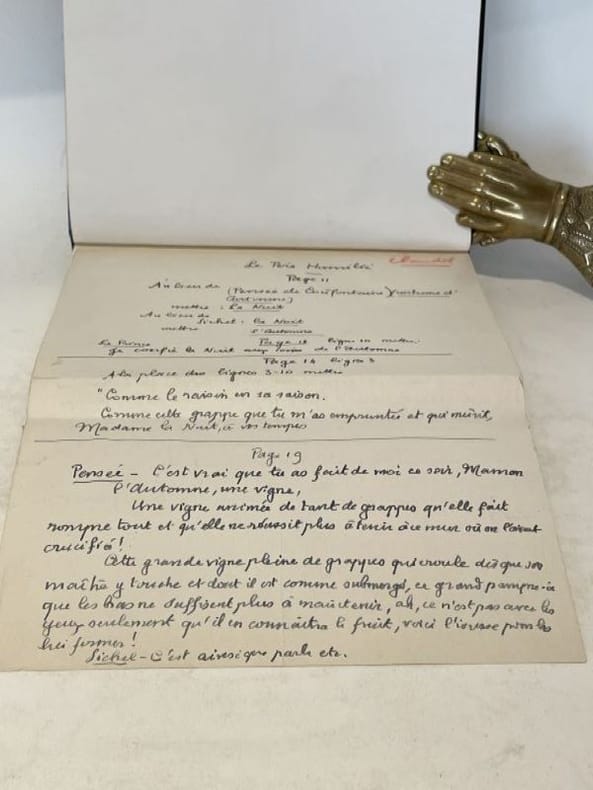 Le Père Humilié
Claudel
Page 11
Au lieu de (Pensée de Coûfontaine) (costume d'
Automne)
mettre : La Nuit
Au lieu de Sichel : la Nuit
mettre l'Automne
Le Prince Page 12 ligne 10 mettre
Je confie la Nuit aux de l'Automne
Page 14 lignes
A la place des lignes 3-10 mettre
"Comme le raisin en sa saison.
Comme cette grappe que tu m'as empruntée et qui mûrit,
Madame la Nuit, à vos tempes
Page 19
Pensée - C'est vrai que tu as fait de moi ce soir, Maman
l'Automne, une vigne,
Une vigne animée de tant de grappes qu'elle fait
rompre tout et qu'elle ne réussit plus à tenir à ce mur où on l'avait
crucifié !
Cette grande vigne pleine de grappes qui croule dès que son
maître y touche et dont il est comme submergé, ce grand pampre
que les bras ne suffisent plus à maintenir, ah, ce n'est pas avec les
yeux seulement qu'il en connaîtra le fruit, voici l'ivresse pour les
lui fermer !
Sichel - C'est ainsi que parle etc.